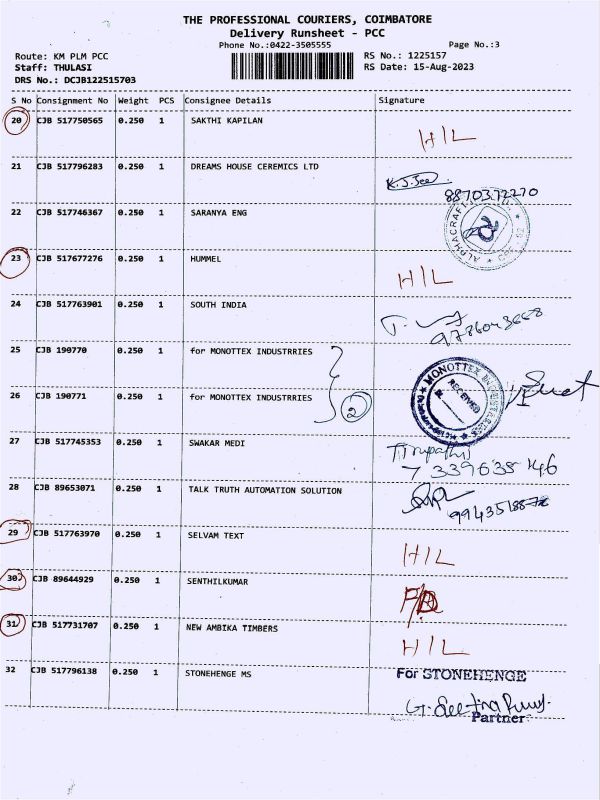 THE PROFESSIONAL COURIERS, COIMBATORE
Delivery Runsheet - PCC
Phone No.:0422-3505555 Page No.:3
Route: KM PLM PCC RS No.: 1225157
Staff: THULASI RS Date: 15-Aug-2023
DRS No.: DCJB122515703
S No Consignment No Weight PCS Consignee Details Signature
20 CJB 517750565 0.250 1 SAKTHI KAPILAN H/L
21 CJB 517796283 0.250 1 DREAMS HOUSE CEREMICS LTD
8870372270
22 CJB 517746367 0.250 1 SARANYA ENG ALPHACRAFT
23 CJB 517677276 0.250 1 HUMMEL H/L
24 CJB 517763901 0.250 1 SOUTH INDIA
25 CJB 190770 0.250 1 for MONOTTEX INDUSTRRIES
26 CJB 190771 0.250 1 for MONOTTEX INDUSTRRIES 2 MONOTTEX INDUSTRIES RECEIVED
27 CJB 517745353 0.250 1 SWAKAR MEDI Tirupathi
7339638146
28 CJB 89653071 0.250 1 TALK TRUTH AUTOMATION SOLUTION
29 CJB 517763970 0.250 1 SELVAM TEXT H/L
30 CJB 89644929 0.250 1 SENTHILKUMAR
31 CJB 517731707 0.250 1 NEW AMBIKA TIMBERS H/L
32 CJB 517796138 0.250 1 STONEHENGE MS For STONEHENGE
Partner